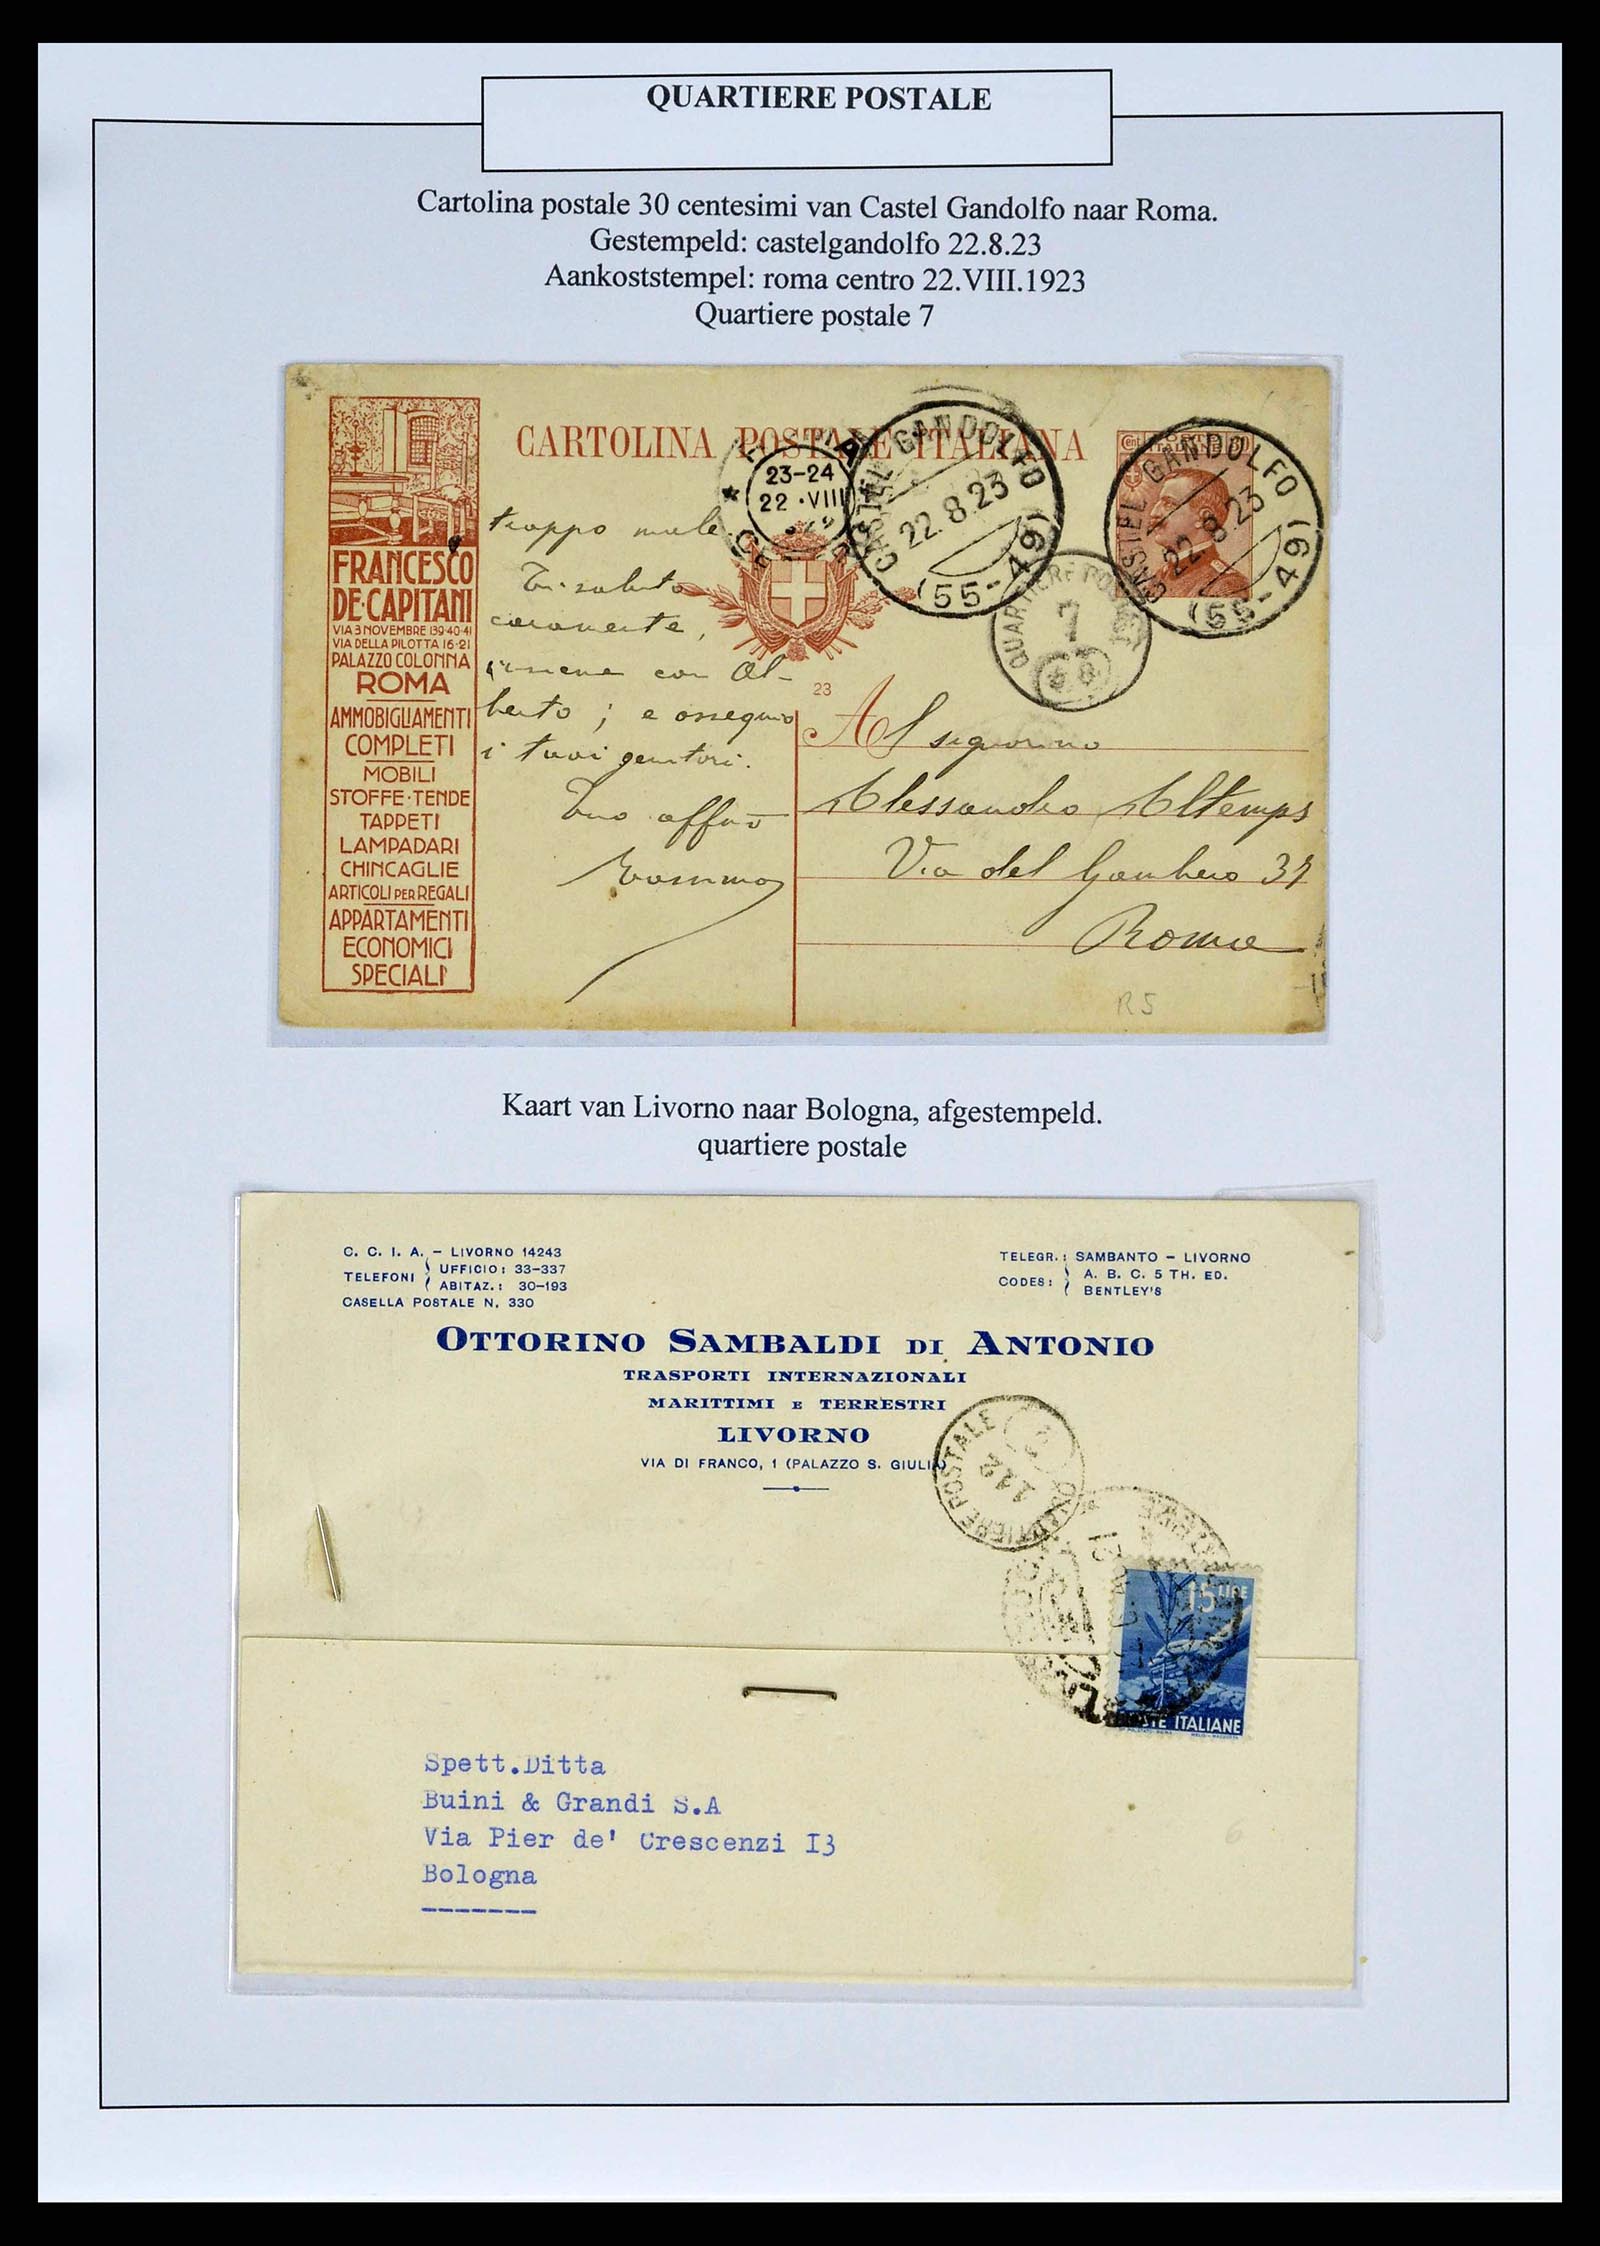 QUARTIERE POSTALE
Cartolina postale 30 centesimi van Castel Gandolfo naar Roma.
Gestempeld: castelgandolfo 22.8.23
Aankoststempel: roma centro 22.VIII.1923
Quartiere postale 7
CARTOLINA POSTALE ITALIANA
23-24
22 · VIII
CASTEL GANDOLFO
22.8.23
(55-49)
CASTEL GANDOLFO
22.8.23
(55-49)
QUARTIERE POSTALE
7
FRANCESCO
DE·CAPITANI
VIA 3 NOVEMBRE 139·40·41
VIA DELLA PILOTTA 16·21
PALAZZO COLONNA
ROMA
AMMOBIGLIAMENTI
COMPLETI
MOBILI
STOFFE·TENDE
TAPPETI
LAMPADARI
CHINCAGLIE
ARTICOLI PER REGALI
APPARTAMENTI
ECONOMICI
SPECIALI
troppo male.
Ti saluto
caramente,
insieme con Al-
berto; e ossequio
i tuoi genitori.
Tuo affmo
Tommaso
23
Al signorino
Alessandro Altemps
Via del Gambero 37
Roma
R5
Kaart van Livorno naar Bologna, afgestempeld.
quartiere postale
C. C. I. A. – LIVORNO 14243
TELEFONI UFFICIO: 33-337
ABITAZ.: 30-193
CASELLA POSTALE N. 330
TELEGR.: SAMBANTO – LIVORNO
CODES: A. B. C. 5 TH. ED.
BENTLEY'S
OTTORINO SAMBALDI DI ANTONIO
TRASPORTI INTERNAZIONALI
MARITTIMI E TERRESTRI
LIVORNO
VIA DI FRANCO, 1 (PALAZZO S. GIULIA)
QUARTIERE POSTALE
15 LIRE
POSTE ITALIANE
Spett.Ditta
Buini & Grandi S.A
Via Pier de' Crescenzi I3
Bologna
6